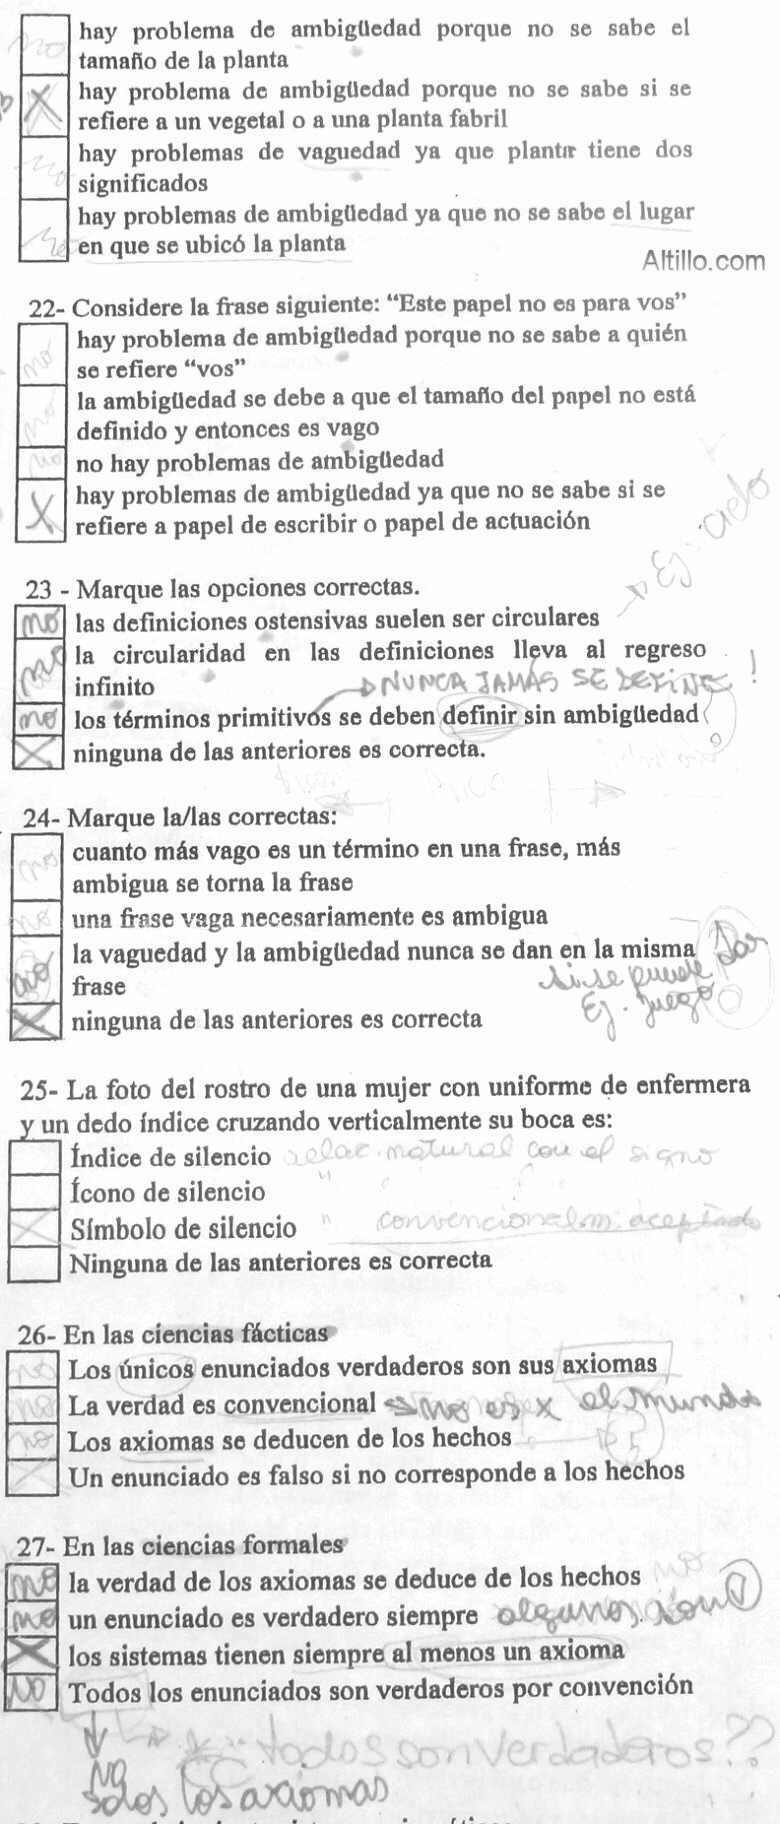 no hay problema de ambigüedad porque no se sabe el
tamaño de la planta
X hay problema de ambigüedad porque no se sabe si se
refiere a un vegetal o a una planta fabril
no hay problemas de vaguedad ya que planta tiene dos
significados
no hay problemas de ambigüedad ya que no se sabe el lugar
en que se ubicó la planta
Altillo.com
22- Considere la frase siguiente: “Este papel no es para vos”
no hay problema de ambigüedad porque no se sabe a quién
se refiere “vos”
no la ambigüedad se debe a que el tamaño del papel no está
definido y entonces es vago
no no hay problemas de ambigüedad
X hay problemas de ambigüedad ya que no se sabe si se
refiere a papel de escribir o papel de actuación
Ej.
23 - Marque las opciones correctas.
no las definiciones ostensivas suelen ser circulares
no la circularidad en las definiciones lleva al regreso
infinito NUNCA JAMAS SE DEFINE !
no los términos primitivos se deben definir sin ambigüedad
X ninguna de las anteriores es correcta.
24- Marque la/las correctas:
no cuanto más vago es un término en una frase, más
ambigua se torna la frase
no una frase vaga necesariamente es ambigua
no la vaguedad y la ambigüedad nunca se dan en la misma
frase si se puede dar
Ej. juego
X ninguna de las anteriores es correcta
25- La foto del rostro de una mujer con uniforme de enfermera
y un dedo índice cruzando verticalmente su boca es:
Índice de silencio relac. natural con el signo
Ícono de silencio "
X Símbolo de silencio " convencionalm. aceptado
Ninguna de las anteriores es correcta
26- En las ciencias fácticas
no Los únicos enunciados verdaderos son sus axiomas
no La verdad es convencional no es x el mundo
no Los axiomas se deducen de los hechos
X Un enunciado es falso si no corresponde a los hechos
27- En las ciencias formales
no la verdad de los axiomas se deduce de los hechos no
no un enunciado es verdadero siempre algunos son
X los sistemas tienen siempre al menos un axioma
NO Todos los enunciados son verdaderos por convención
todos son verdaderos??
NO
solos los axiomas